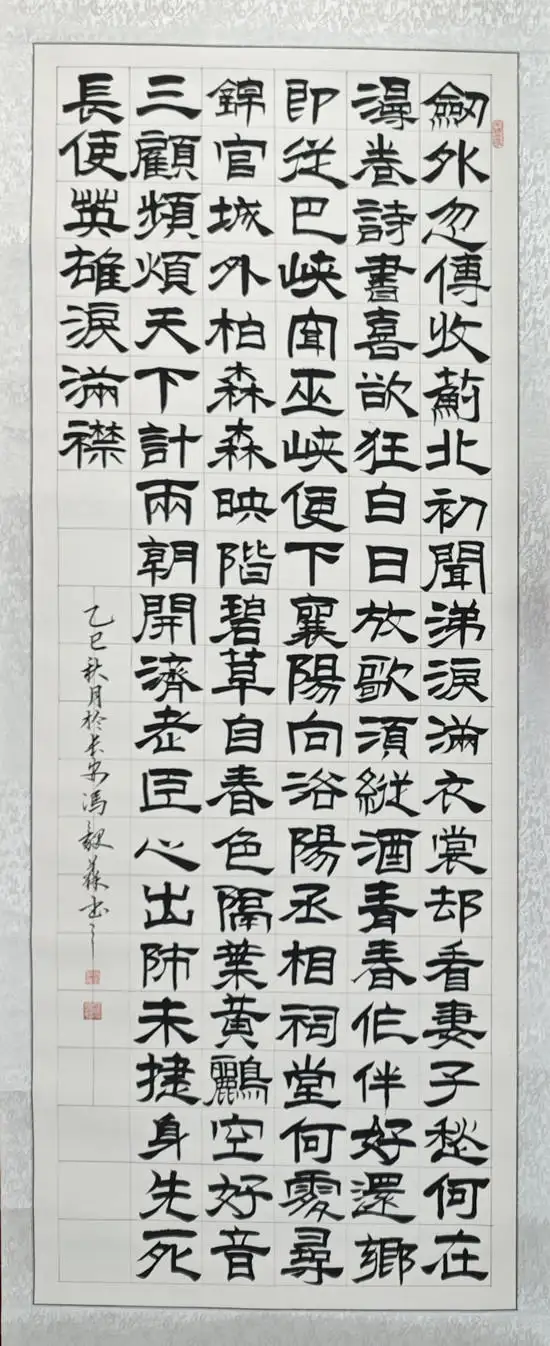 劒外忽傳收薊北初聞涕淚滿衣裳却看妻子愁何在
漫卷詩書喜欲狂白日放歌須縱酒青春作伴好還鄉
即從巴峽穿巫峽便下襄陽向洛陽丞相祠堂何處尋
錦官城外柏森森映階碧草自春色隔葉黃鸝空好音
三顧頻煩天下計兩朝開濟老臣心出師未捷身先死
長使英雄淚滿襟
乙巳秋月於长安冯毅书